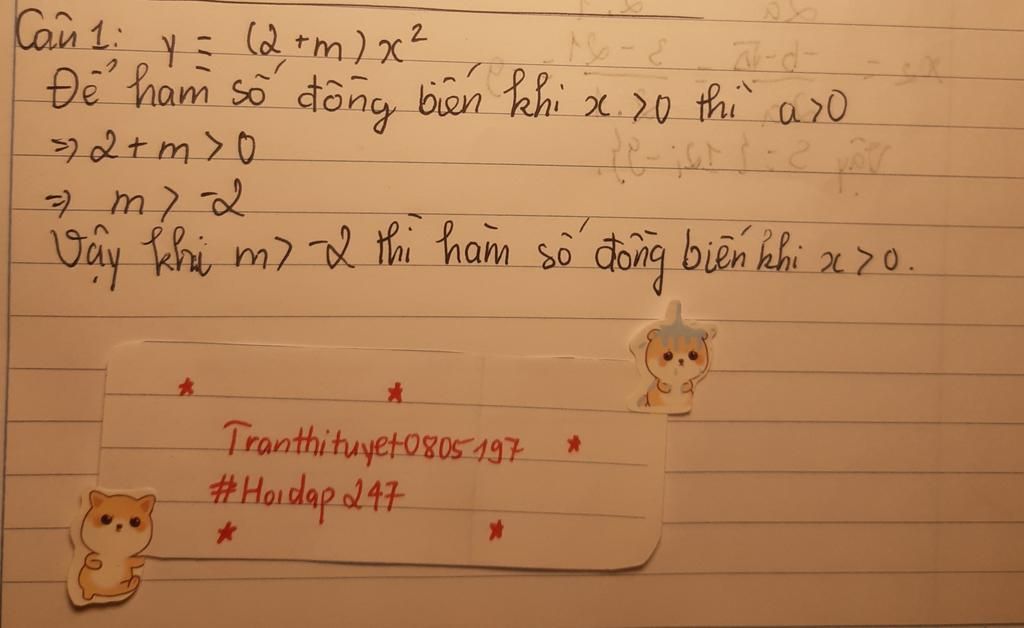 Câu 1: y = (2 + m) x²
Để hàm số đồng biến khi x > 0 thì a > 0
⇒ 2 + m > 0
⇒ m > -2
Vậy khi m > -2 thì hàm số đồng biến khi x > 0.
Tranthituyet0805197
#Hoidap247